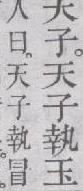 天子。天子執玉
人日。天子執冒